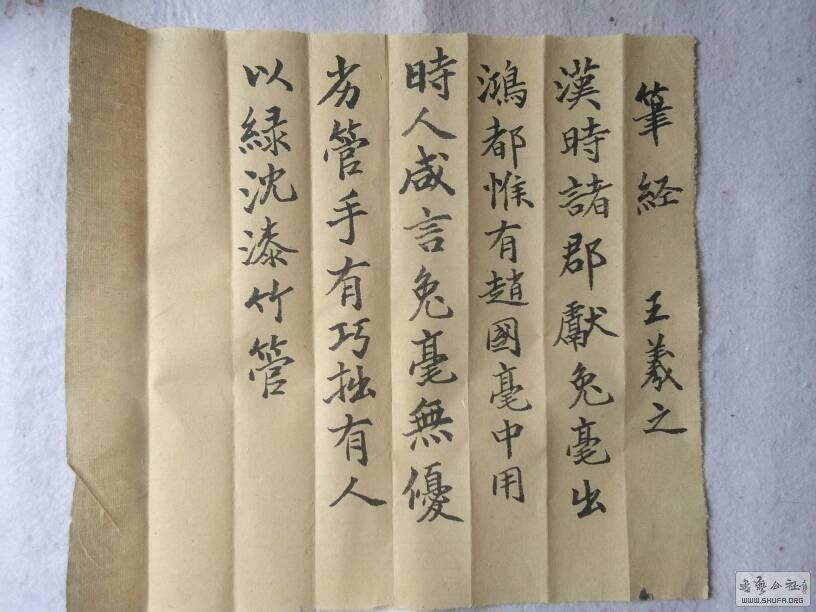 筆経 王羲之
漢時諸郡獻兔毫出
鴻都惟有趙國毫中用
時人咸言兔毫無優
劣管手有巧拙有人
以緑沈漆竹管
书艺公社
WWW.SHUFA.ORG